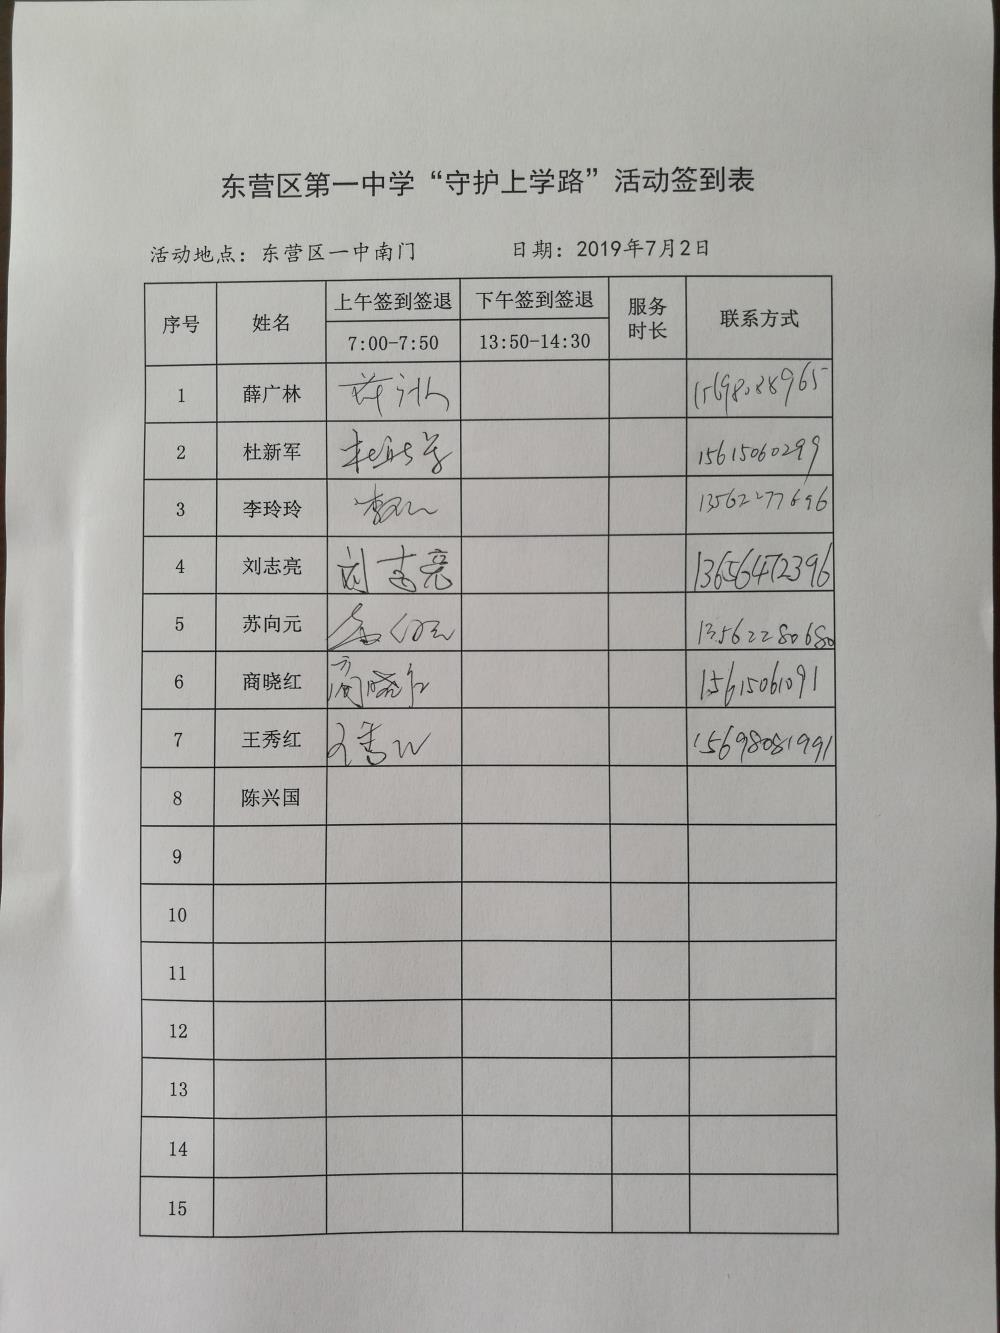 东营区第一中学“守护上学路”活动签到表
活动地点：东营区一中南门 日期：2019年7月2日
序号 姓名 上午签到签退 下午签到签退 服务时长 联系方式
7:00-7:50 13:50-14:30
1 薛广林 薛广林 15698088965
2 杜新军 杜新军 15615060299
3 李玲玲 13562277696
4 刘志亮 刘志亮 13656472396
5 苏向元 苏向元 13562280680
6 商晓红 商晓红 15615061091
7 王秀红 王秀红 15698081991
8 陈兴国
9
10
11
12
13
14
15